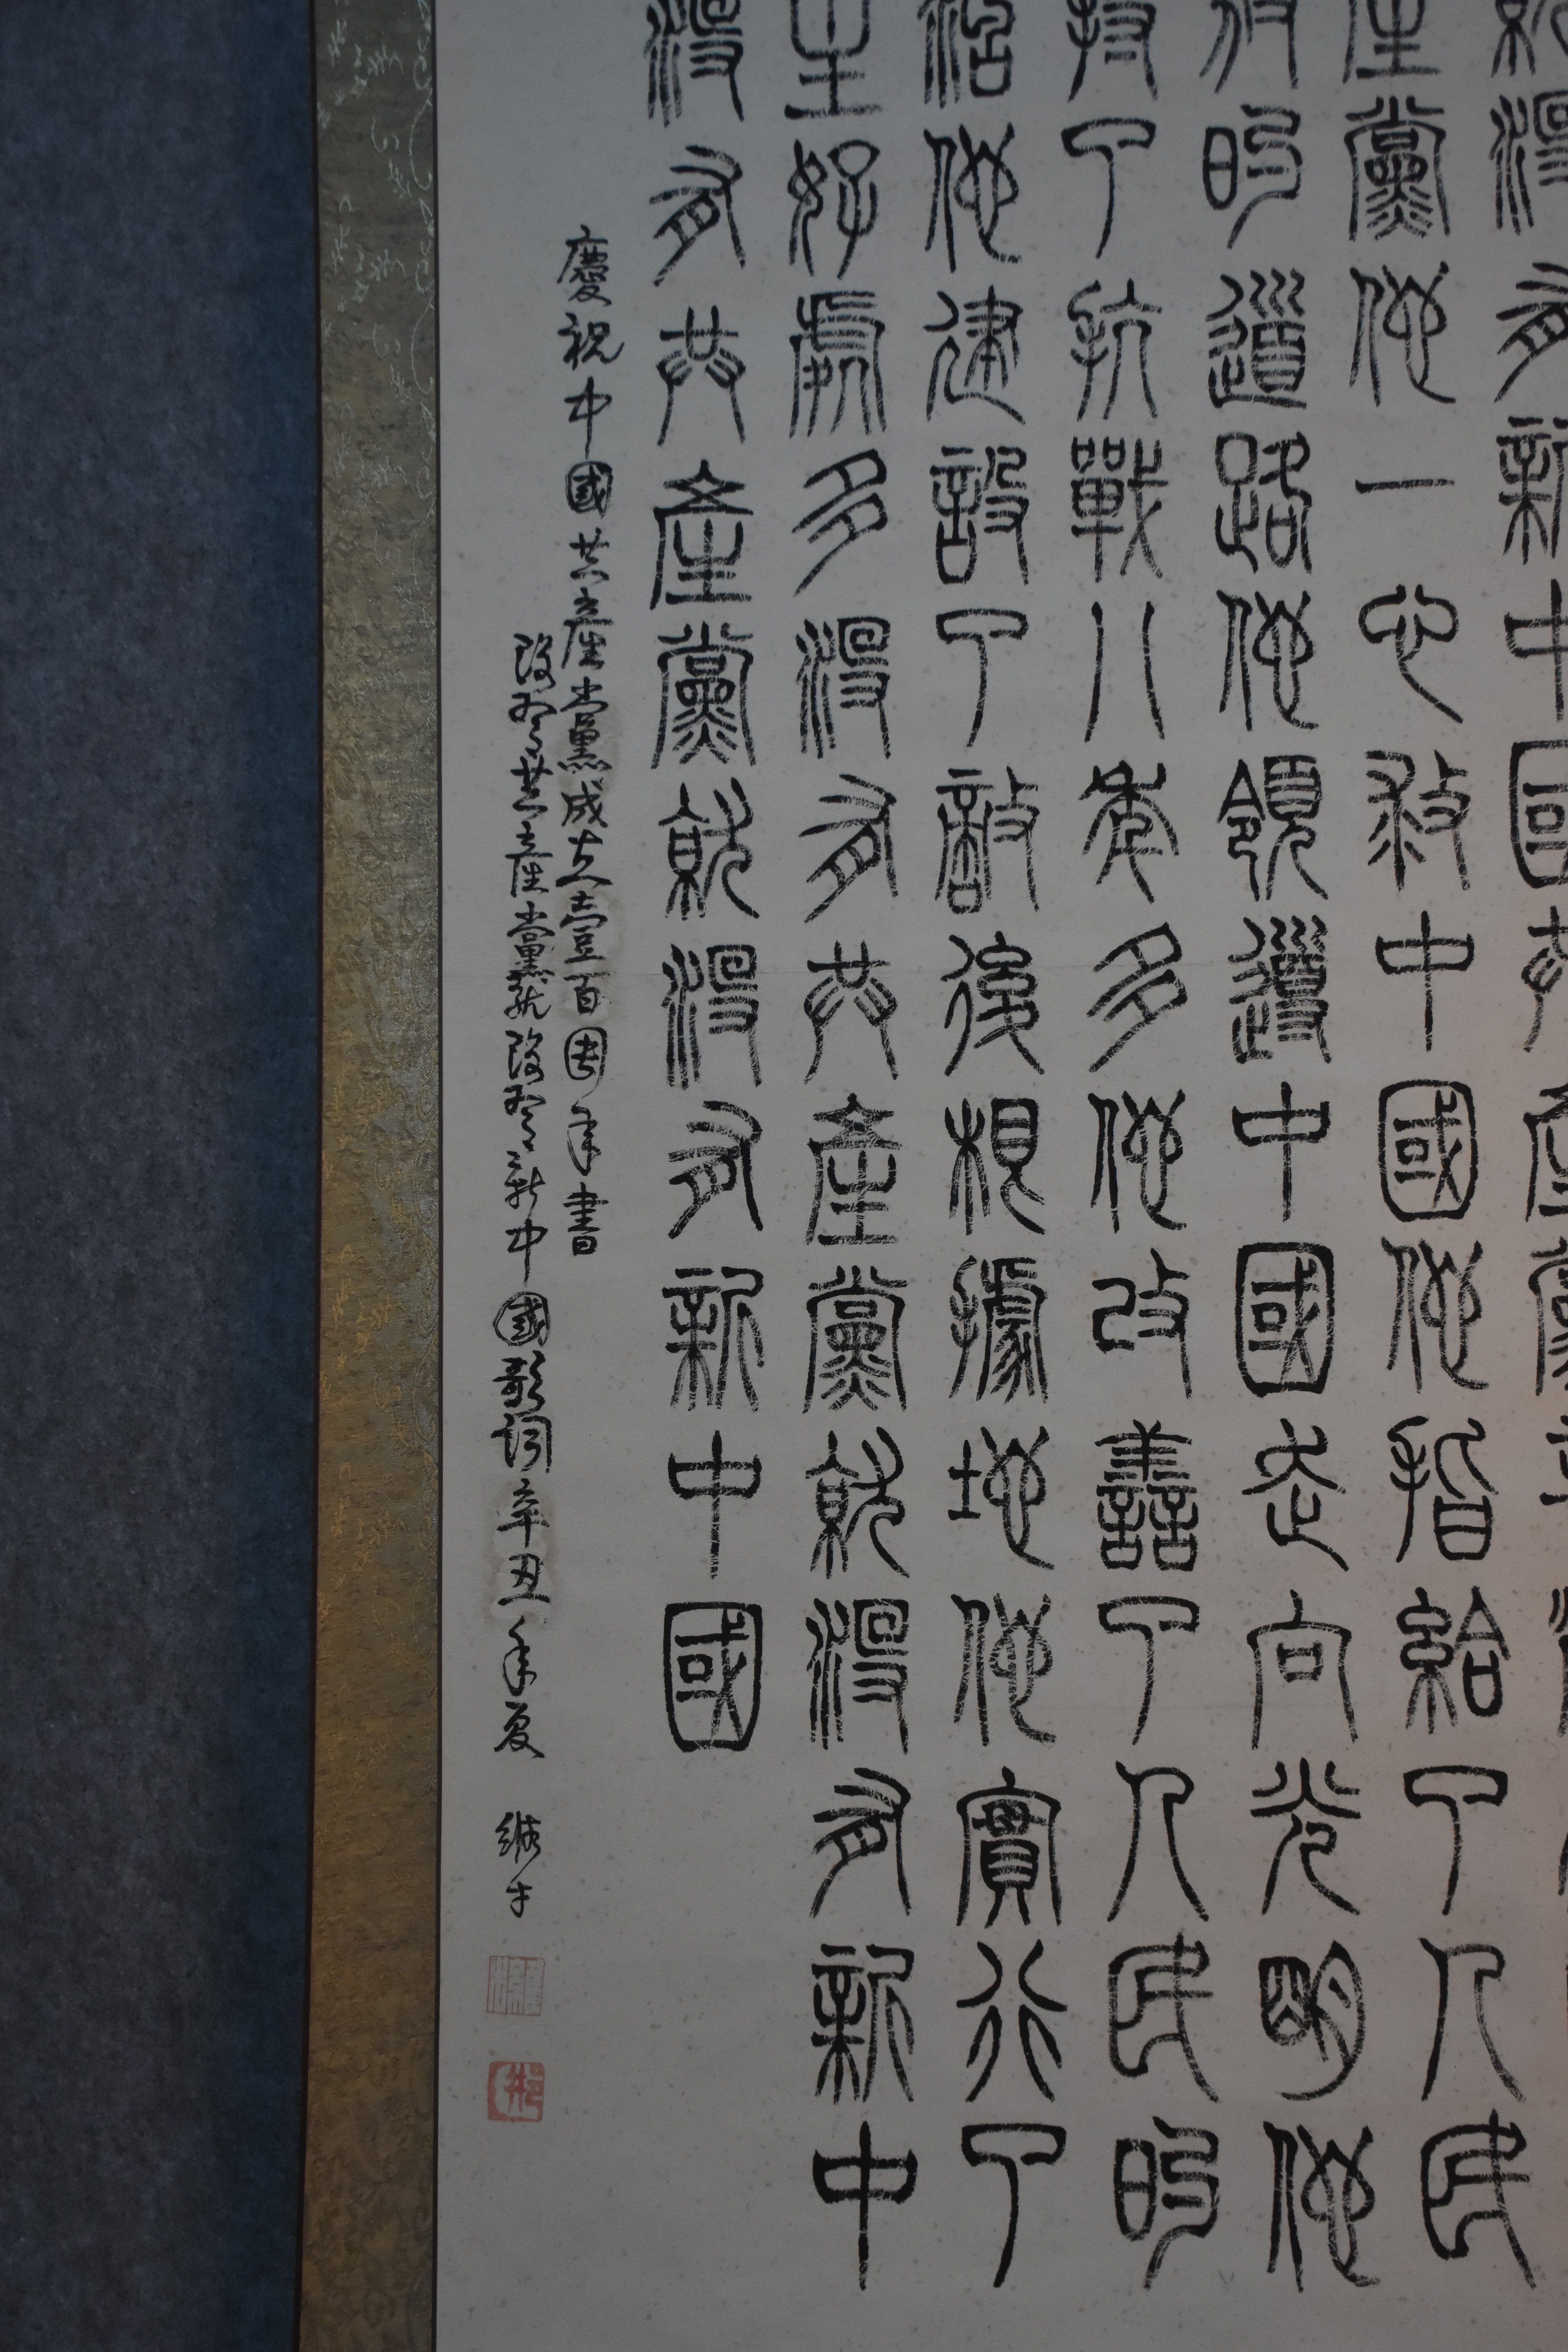 沒有新中國共產黨
產黨他一心救中國他指給了人民
放的道路他領導中國走向光明他
持了抗戰八年多他改善了人民的
活他建設了敵後根據地他實行了
主好處多沒有共產黨就沒有新中
沒有共產黨就沒有新中國
慶祝中國共產黨成立壹百周年書
沒有共產黨就沒有新中國歌詞辛丑年夏